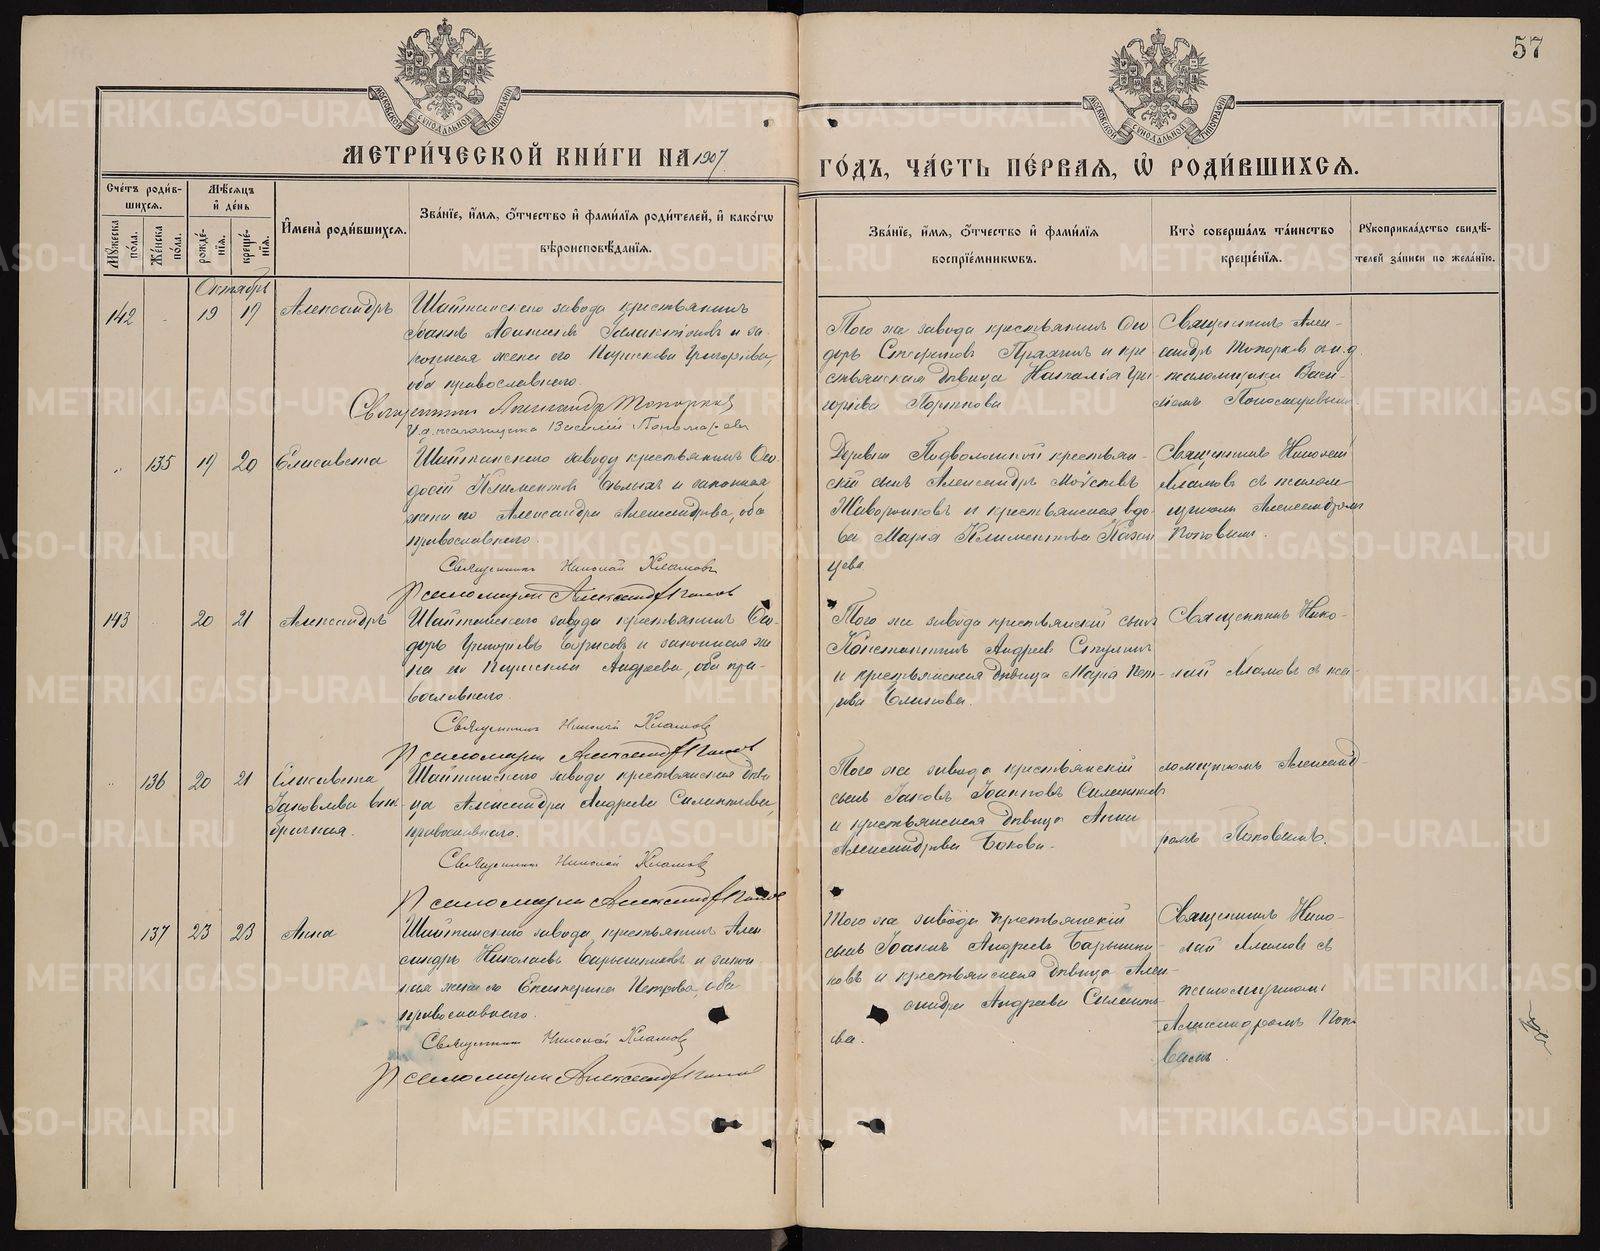 57
МОСКОВСКОЙ СѴНОДАЛЬНОЙ ТИПОГРАФІИ
МОСКОВСКОЙ СѴНОДАЛЬНОЙ ТИПОГРАФІИ
МЕТРИ́ЧЕСКОЙ КНИ́ГИ НА 1907
ГО́ДЪ, ЧА́СТЬ ПЕ́РВАЯ, Ѡ҆ РОДИ́ВШИХСЯ.
Сче́тъ роди́в-
шихся.
Мѣ́сяцъ
и҆ де́нь
Мꙋ́жеска по́ла.
Же́нска по́ла.
рожде́-
нїя.
креще́-
нїя.
И҆мена̀ роди́вшихся.
Зва́нїе, и҆́мя, ѻ҆́тчество и҆ фами́лїя роди́телей, и҆ како́гѡ
вѣроисповѣ́данїя.
Зва́нїе, и҆́мя, ѻ҆́тчество и҆ фами́лїя
воспрїе́мниковъ.
Кто̀ соверша́лъ та́инство
креще́нїя.
Рꙋкоприкла́дство свидѣ́-
телей за́писи по жела́нїю.
Октябрь
142 19 19 Александръ
Шайтанскаго завода крестьянинъ
Іоаннъ Галактіоновъ и за-
конная жена его Григорьева,
оба православнаго.
Священникъ Александръ Топорковъ
И.д. псаломщика Василій Пономаревъ
Того же завода крестьянинъ Ѳео-
доръ и кре-
стьянская дѣвица Наталія Гри-
горьева
Священникъ Алек-
сандръ Топорковъ съ и.д.
псаломщика Васи-
ліемъ Пономаревымъ
135 19 20 Елисавета
Шайтанскаго завода крестьянинъ Ѳео-
досій Климентовъ Бѣлыхъ и законная
жена его Александра Александрова, оба
православнаго.
Священникъ Николай Хламовъ
Псаломщикъ Александръ Поповъ
Деревни Подволошной крестьян-
скій сынъ Александръ
Жаворонковъ и крестьянская вдо-
ва Марія Климентова Казан-
цева
Священникъ Николай
Хламовъ съ псалом-
щикомъ Александромъ
Поповымъ.
143 20 21 Александръ
Шайтанскаго завода крестьянинъ Ѳео-
доръ Григорьевъ Борисовъ и законная же-
на его Андреева, оба пра-
вославнаго.
Священникъ Николай Хламовъ
Псаломщикъ Александръ Поповъ
Того же завода крестьянскій сынъ
Константинъ Андреевъ
и крестьянская дѣвица Марія Пет-
рова
Священникъ Нико-
лай Хламовъ съ пса-
136 20 21 Елисавета
Іаковлева внѣ-
брачная.
Шайтанскаго завода крестьянская дѣви-
ца Александра Андреева Силантьева,
православнаго.
Священникъ Николай Хламовъ
Псаломщикъ Александръ Поповъ
Того же завода крестьянскій
сынъ Іаковъ Іоанновъ
и крестьянская дѣвица Анна
Александрова
ломщикомъ Александ-
ромъ Поповымъ.
137 23 23 Анна
Шайтанскаго завода крестьянинъ Алек-
сандръ Николаевъ Барышниковъ и закон-
ная жена его Екатерина Петрова, оба
православнаго.
Священникъ Николай Хламовъ
Псаломщикъ Александръ Поповъ
Того же завода крестьянскій
сынъ Іоаннъ Андреевъ Барышни-
ковъ и крестьянская дѣвица Алек-
сандра Андреева Силанть-
ева.
Священникъ Нико-
лай Хламовъ съ
псаломщикомъ
Александромъ Попо-
вымъ.
METRIKI.GASO-URAL.RU